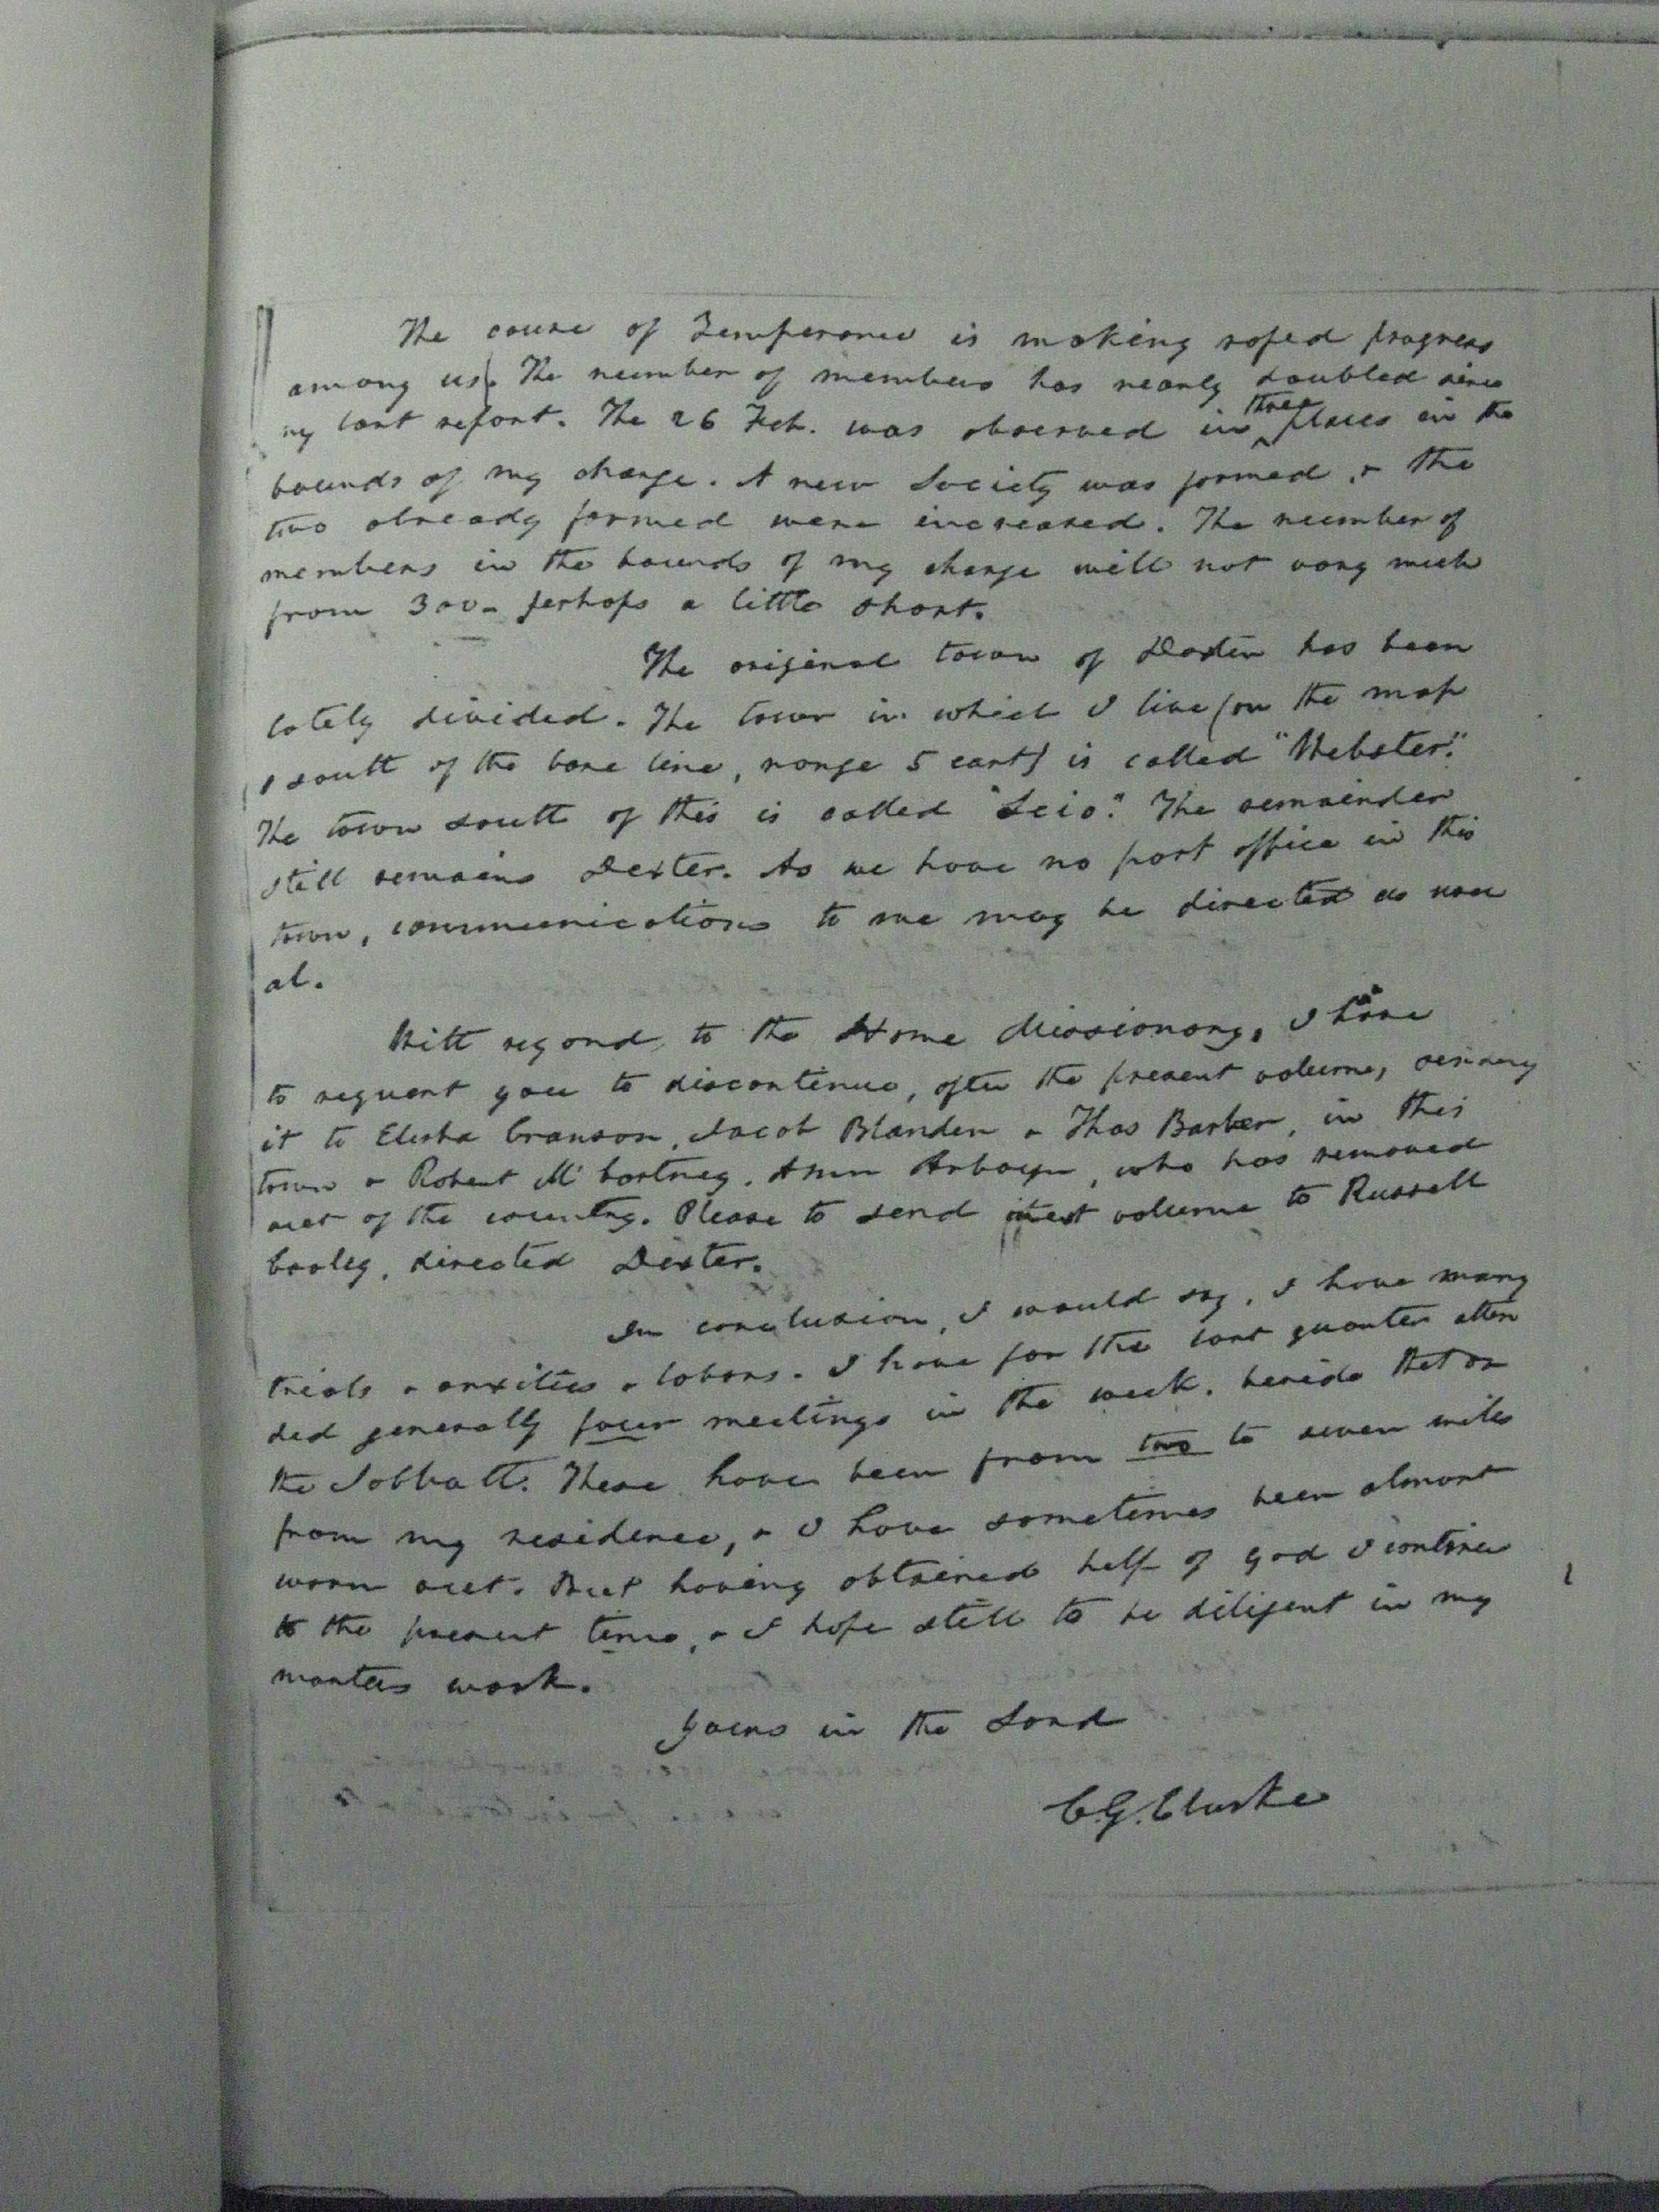 The cause of Temperance is making rapid progress
among us. The number of members has nearly doubled since
my last report. The 26 Feb. was observed in three places in the
bounds of my charge. A new Society was formed, & the
two already formed were increased. The number of
members in the bounds of my charge will not vary much
from 300- perhaps a little short.
The original town of Dexter has been
lately divided. The town in which I live (on the map
1 south of the base line, range 5 east) is called "Webster."
The town south of this is called "Scio." The remainder
still remains Dexter. As we have no post office in this
town, communications to me may be directed as usu
al.
With regard, to the Home Missionary, I have
to request you to discontinue, after the present volume, sending
it to Elisha Cranson, Jacob Blanden & Thos Barber, in this
town & Robert Mc Cartney, Ann Arbour, who has removed
out of the country. Please to send next volume to Russell
Cooley, directed Dexter.
In conclusion, I would say, I have many
trials & anxities & labors. I have for the last quarter atten
ded generally four meetings in the week, beside that on
the Sabbath. These have been from two to seven miles
from my residence, & I have sometimes been almost
worn out. But having obtained help of God I continue
to the present time, & I hope still to be diligent in my
masters work.
Yours in the Lord
C.G. Clarke